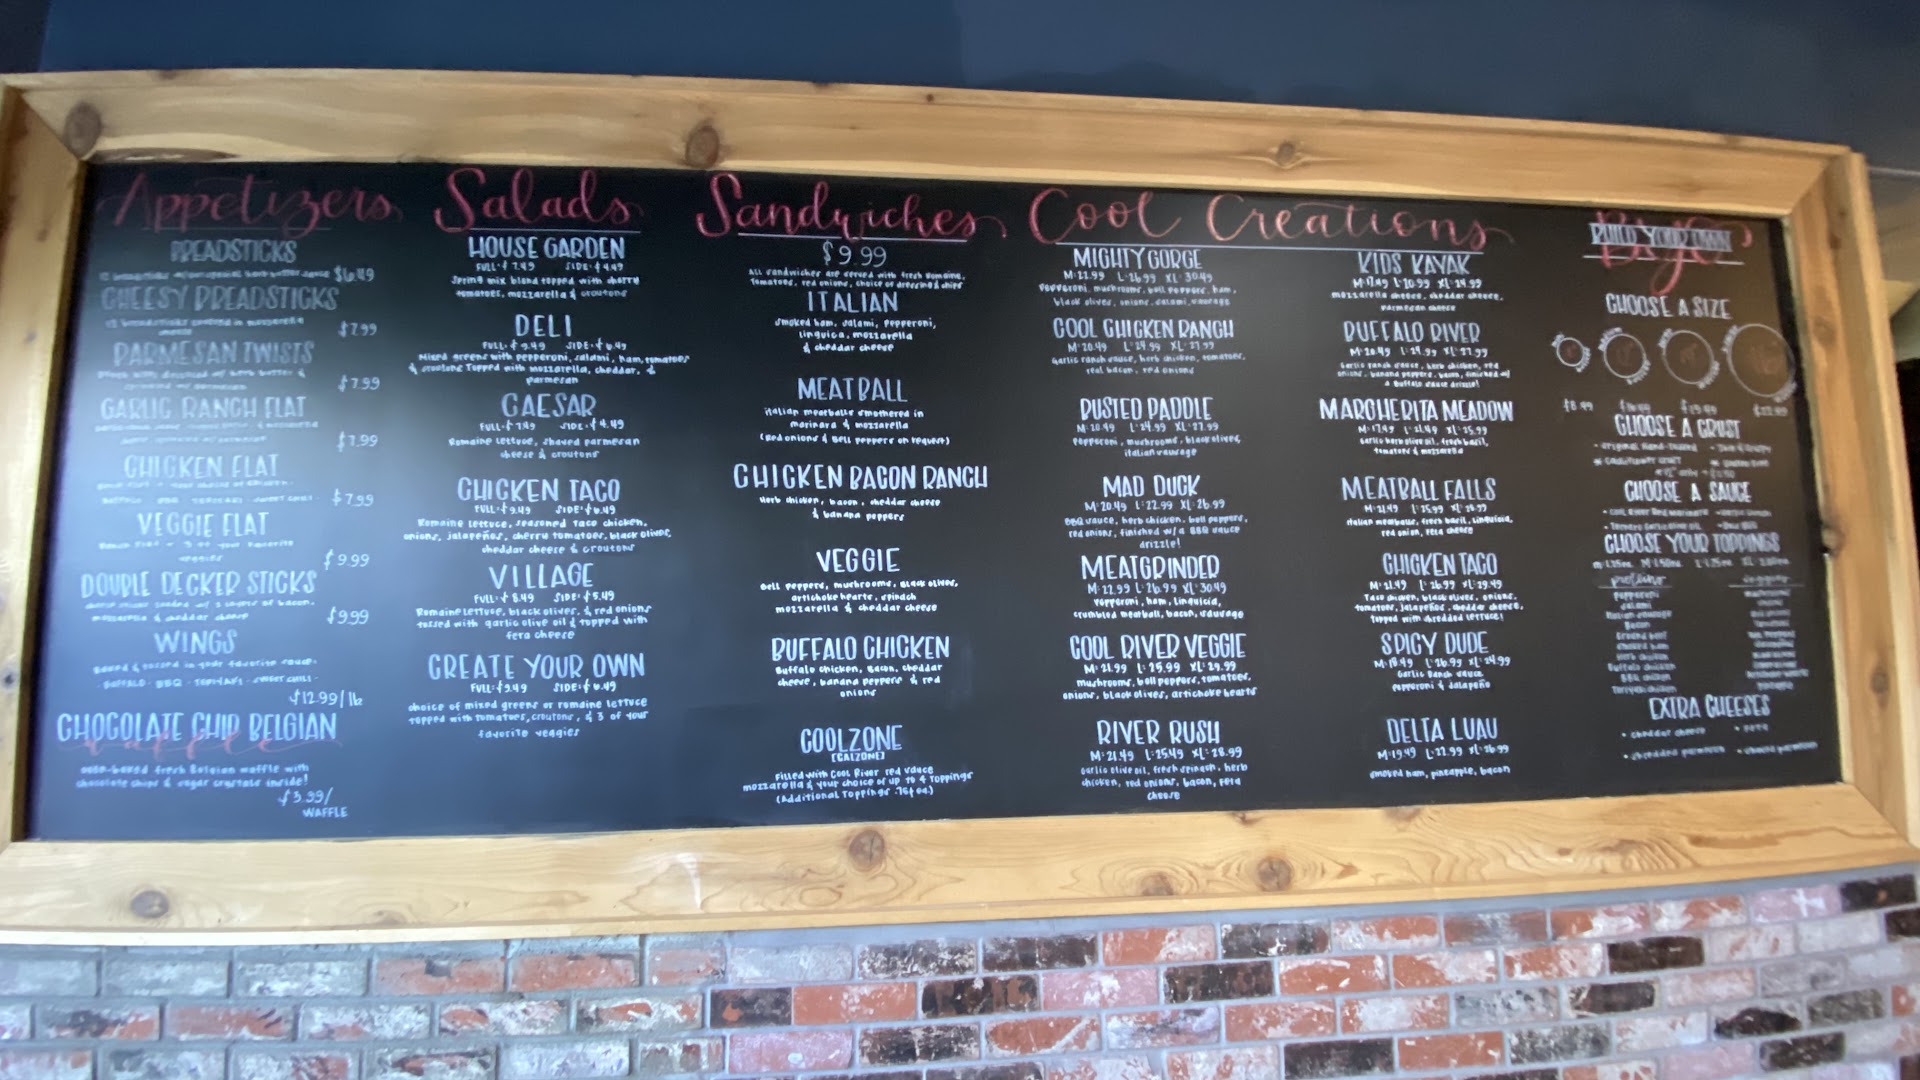 Appetizers
BREADSTICKS
$6.49
CHEESY BREADSTICKS
12 breadsticks covered in mozzarella
cheese
$7.99
PARMESAN TWISTS
$7.99
GARLIC RANCH FLAT
$7.99
CHICKEN FLAT
BUFFALO · BBQ · TERIYAKI · SWEET CHILI
$7.99
VEGGIE FLAT
veggies
$9.99
DOUBLE DECKER STICKS
mozzarella & cheddar cheese
$9.99
WINGS
Baked & tossed in your favorite sauce.
BUFFALO · BBQ · TERIYAKI · SWEET CHILI
$12.99/lb
CHOCOLATE CHIP BELGIAN
waffle
oven-baked fresh Belgian waffle with
chocolate chips & sugar crystals inside!
$3.99/
WAFFLE
Salads
HOUSE GARDEN
FULL: $7.49 SIDE: $4.49
Spring mix blend topped with cherry
tomatoes, mozzarella & croutons
DELI
FULL: $9.49 SIDE: $6.49
Mixed greens with pepperoni, salami, ham, tomatoes
& croutons Topped with mozzarella, cheddar, &
parmesan
CAESAR
FULL: $7.49 SIDE: $4.49
Romaine lettuce, shaved parmesan
cheese & croutons
CHICKEN TACO
FULL: $9.49 SIDE: $6.49
Romaine lettuce, seasoned Taco chicken,
onions, jalapeños, cherry tomatoes, black olives,
cheddar cheese & croutons
VILLAGE
FULL: $8.49 SIDE: $5.49
Romaine lettuce, black olives, & red onions
tossed with garlic olive oil & topped with
feta cheese
CREATE YOUR OWN
FULL: $9.49 SIDE: $6.49
choice of mixed greens or romaine lettuce
topped with tomatoes, croutons, & 3 of your
favorite veggies
Sandwiches
$9.99
All sandwiches are served with fresh Romaine,
Tomatoes, red onions, choice of dressing & chips
ITALIAN
smoked ham, salami, pepperoni,
linguica, mozzarella
& cheddar cheese
MEATBALL
italian meatballs smothered in
marinara & mozzarella
(Red onions & Bell peppers on request)
CHICKEN BACON RANCH
Herb chicken, bacon, cheddar cheese
& banana peppers
VEGGIE
Bell peppers, mushrooms, Black olives,
artichoke hearts, spinach
mozzarella & cheddar cheese
BUFFALO CHICKEN
Buffalo chicken, Bacon, cheddar
cheese, banana peppers & red
onions
COOLZONE
[CALZONE]
Filled with Cool River red sauce
mozzarella & your choice of up to 4 toppings
(Additional Toppings .75¢ ea.)
Cool Creations
MIGHTY GORGE
M: 22.99 L: 26.99 XL: 30.49
Pepperoni, mushrooms, bell peppers, ham,
black olives, onions, salami, sausage
COOL CHICKEN RANCH
M: 20.49 L: 24.99 XL: 27.99
Garlic ranch sauce, herb chicken, tomatoes,
real bacon, red onions
BUSTED PADDLE
M: 20.49 L: 24.99 XL: 27.99
Pepperoni, mushrooms, black olives,
italian sausage
MAD DUCK
M: 20.49 L: 22.99 XL: 26.99
BBQ sauce, herb chicken, bell peppers,
red onions, finished w/ a BBQ sauce
drizzle!
MEATGRINDER
M: 22.99 L: 26.99 XL: 30.49
Pepperoni, ham, linguica,
crumbled meatball, bacon, sausage
COOL RIVER VEGGIE
M: 21.99 L: 25.99 XL: 29.99
mushrooms, bell peppers, tomatoes,
onions, black olives, artichoke hearts
RIVER RUSH
M: 21.49 L: 25.49 XL: 28.99
Garlic olive oil, fresh spinach, herb
chicken, red onions, bacon, feta
cheese
KIDS KAYAK
M: 17.49 L: 20.99 XL: 24.99
mozzarella cheese, cheddar cheese,
parmesan cheese
BUFFALO RIVER
M: 20.49 L: 24.99 XL: 27.99
Garlic ranch sauce, herb chicken, red
onions, banana peppers, bacon, finished w/
a Buffalo sauce drizzle!
MARGHERITA MEADOW
M: 17.49 L: 21.49 XL: 25.99
Garlic herb olive oil, fresh basil,
tomatoes & mozzarella
MEATBALL FALLS
M: 21.49
italian meatballs, fresh basil, linguica,
red onion, feta cheese
CHICKEN TACO
M: 21.49 L: 26.99 XL: 29.49
Taco chicken, black olives, onions,
tomatoes, jalapeños, cheddar cheese,
Topped with shredded lettuce!
SPICY DUDE
Garlic Ranch sauce
pepperoni & jalapeño
DELTA LUAU
M: 19.49 L: 22.99 XL: 26.99
smoked ham, pineapple, bacon
BYO
BUILD YOUR OWN
CHOOSE A SIZE
$8.49
CHOOSE A CRUST
CHOOSE A SAUCE
CHOOSE YOUR TOPPINGS
proteins veggies
pepperoni
salami
Italian sausage
Bacon
Ground beef
smoked ham
Herb chicken
Buffalo chicken
BBQ chicken
Teriyaki chicken
EXTRA CHEESES
• cheddar cheese • feta
• shredded parmesan